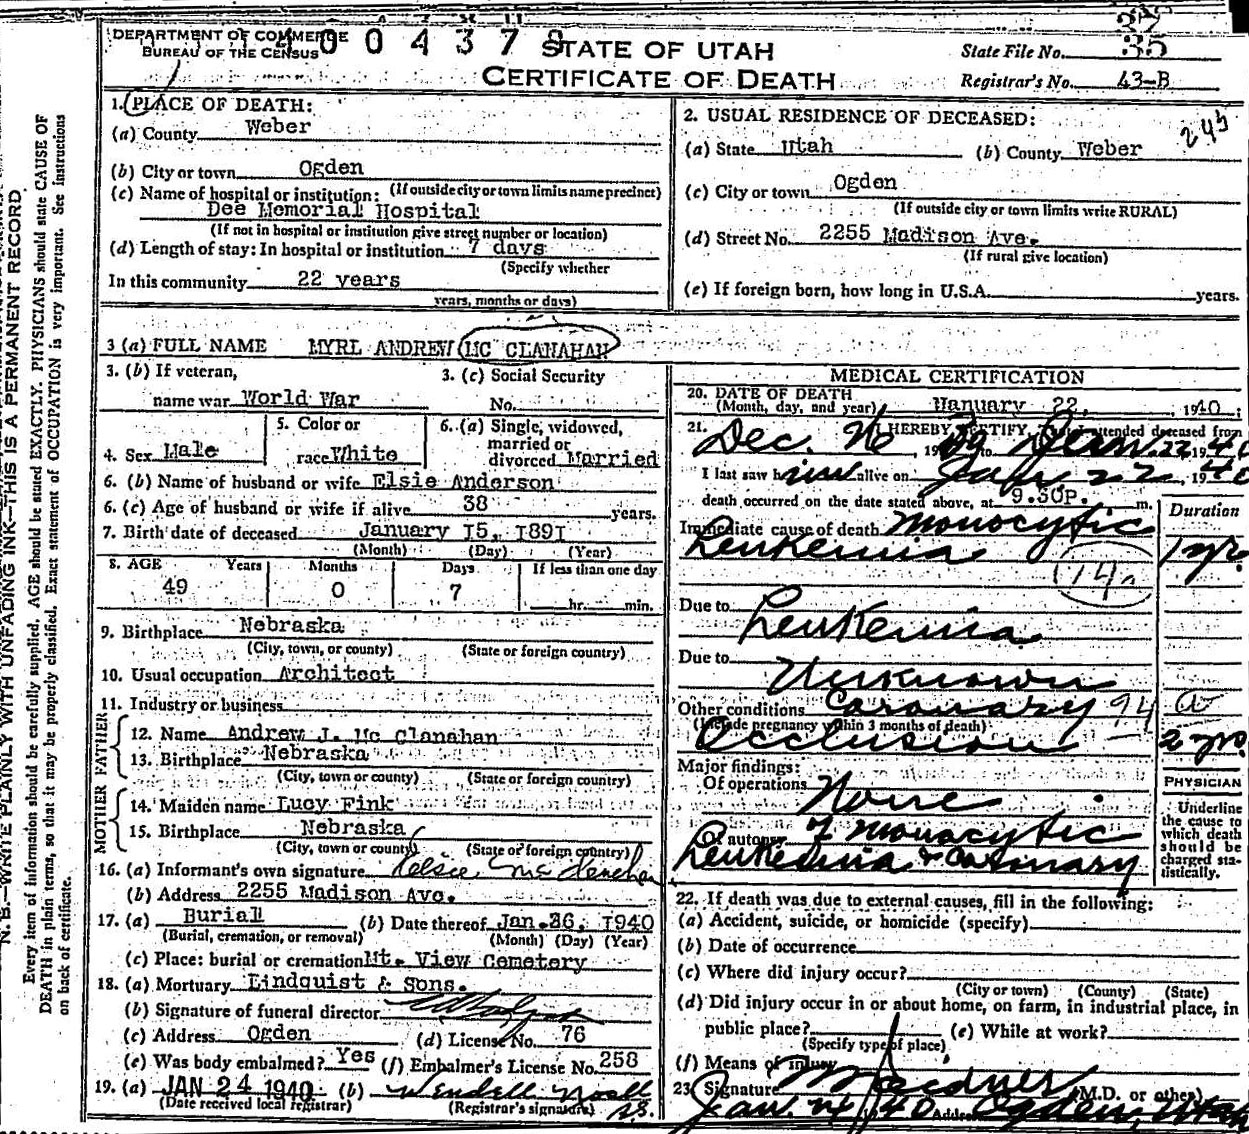 DEPARTMENT OF COMMERCE
BUREAU OF THE CENSUS
STATE OF UTAH
CERTIFICATE OF DEATH
State File No. 35
Registrar's No. 43-B
1. PLACE OF DEATH:
(a) County Weber
(b) City or town Ogden
(c) Name of hospital or institution: (If outside city or town limits name precinct)
Dee Memorial Hospital
(If not in hospital or institution give street number or location)
(d) Length of stay: In hospital or institution 7 days
(Specify whether
In this community 22 years
years, months or days)
2. USUAL RESIDENCE OF DECEASED:
245
(a) State Utah (b) County Weber
(c) City or town Ogden
(If outside city or town limits write RURAL)
(d) Street No. 2255 Madison Ave.
(If rural give location)
(e) If foreign born, how long in U.S.A. years.
3 (a) FULL NAME MYRL ANDREW MC CLANAHAN
3. (b) If veteran,
name war World War
3. (c) Social Security
No.
4. Sex Male
5. Color or
race White
6. (a) Single, widowed,
married or
divorced Married
6. (b) Name of husband or wife Elsie Anderson
6. (c) Age of husband or wife if alive 38 years.
7. Birth date of deceased January 15, 1891
(Month) (Day) (Year)
8. AGE Years Months Days If less than one day
49 0 7 hr. min.
9. Birthplace Nebraska
(City, town, or county) (State or foreign country)
10. Usual occupation Architect
11. Industry or business
FATHER
12. Name Andrew J. Mc Clanahan
13. Birthplace Nebraska
(City, town or county) (State or foreign country)
MOTHER
14. Maiden name Lucy Fink
15. Birthplace Nebraska
(City, town or county) (State or foreign country)
16. (a) Informant's own signature Elsie McClanahan
(b) Address 2255 Madison Ave.
17. (a) Burial (b) Date thereof Jan. 26, 1940
(Burial, cremation, or removal) (Month) (Day) (Year)
(c) Place: burial or cremation Mt. View Cemetery
18. (a) Mortuary Lindquist & Sons.
(b) Signature of funeral director
(c) Address Ogden (d) License No. 76
(e) Was body embalmed? Yes (f) Embalmer's License No. 258
19. (a) JAN 24 1940 (b) Wendell
(Date received local registrar) (Registrar's signature)
MEDICAL CERTIFICATION
20. DATE OF DEATH
(Month, day, and year) January 22, 1940
21. I HEREBY CERTIFY, that I attended deceased from
Dec. 19 39 to Jan. 22 19 40
I last saw him alive on Jan 22, 1940
death occurred on the date stated above, at 9.30P. m.
Duration
Immediate cause of death Monocytic
Leukemia 1 yr.
Due to Leukemia
Due to Unknown
Other conditions Coronary 94 a
(Include pregnancy within 3 months of death)
Occlusion 2 yrs
Major findings:
Of operations None
Of autopsy of Monocytic
Leukemia & Coronary
PHYSICIAN
Underline
the cause to
which death
should be
charged sta-
tistically.
22. If death was due to external causes, fill in the following:
(a) Accident, suicide, or homicide (specify)
(b) Date of occurrence
(c) Where did injury occur?
(City or town) (County) (State)
(d) Did injury occur in or about home, on farm, in industrial place, in
public place? (e) While at work?
(Specify type of place)
(f) Means of injury
23. Signature (M.D. or other)
Jan. 24 1940 Address Ogden, Utah
N. B.—WRITE PLAINLY WITH UNFADING INK—THIS IS A PERMANENT RECORD
Every item of information should be carefully supplied. AGE should be stated EXACTLY. PHYSICIANS should state CAUSE OF
DEATH in plain terms, so that it may be properly classified. Exact statement of OCCUPATION is very important. See instructions
on back of certificate.